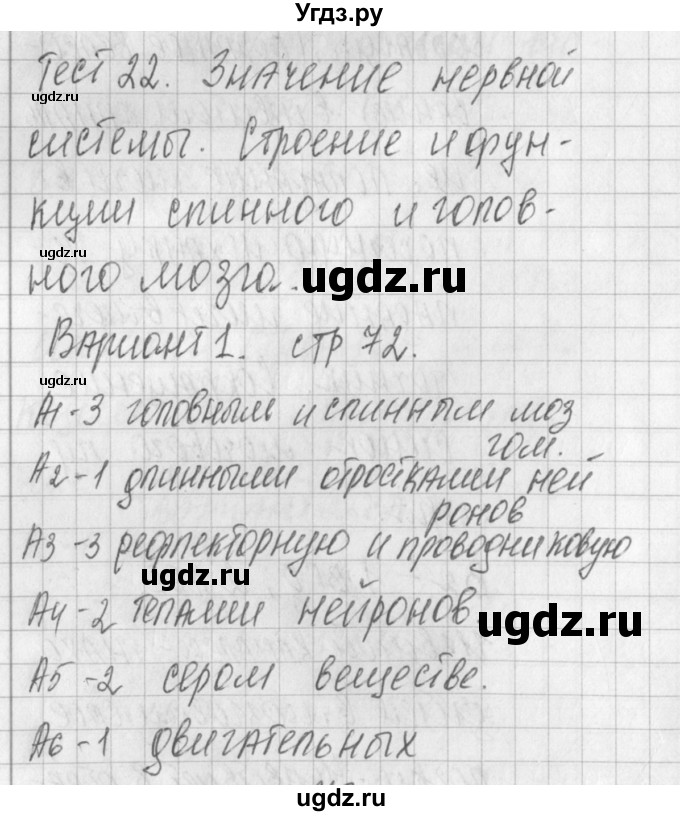 Угдз.ру
Тест 22. Значение нервной
ugdz.ru
системы. Строение и фун-
кции спинного и голов-
ugdz.ru
ного мозга.
ugdz.ru
Вариант 1. стр 72.
ugdz.ru
А1-3 головным и спинным моз
гом.
А2-1 длинными отростками ней
ронов
А3-3 рефлекторную и проводниковую
ugdz.ru
А4-2 телами нейронов.
ugdz.ru
А5-2 сером веществе.
А6-1 двигательных
ugdz.ru